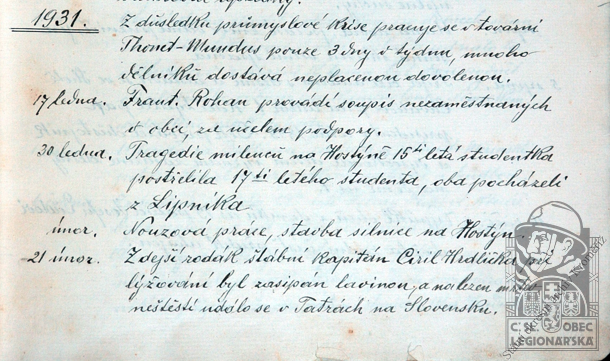 1931. Z důsledku průmyslové krise pracuje se v továrni
Thonet-Mundus pouze 3 dny v týdnu, mnoho
dělníků dostává neplacenou dovolenou.
17 ledna. Frant. Rohan provádí soupis nezaměstnaných
v obci, za účelem podpory.
30 ledna. Tragedie milenců na Hostýně 15ti letá studentka
postřelila 17ti letého studenta, oba pocházeli
z Lipníka.
únor. Nouzová práce, stavba silnice na Hostýn
21 únor. Zdejší rodák štábní kapitán Ciril Hrdlička při
lyžování byl zasypán lavinou, a nalezen
neštěstí událo se v Tatrách na Slovensku.
OBEC
LEGIONÁŘSKÁ